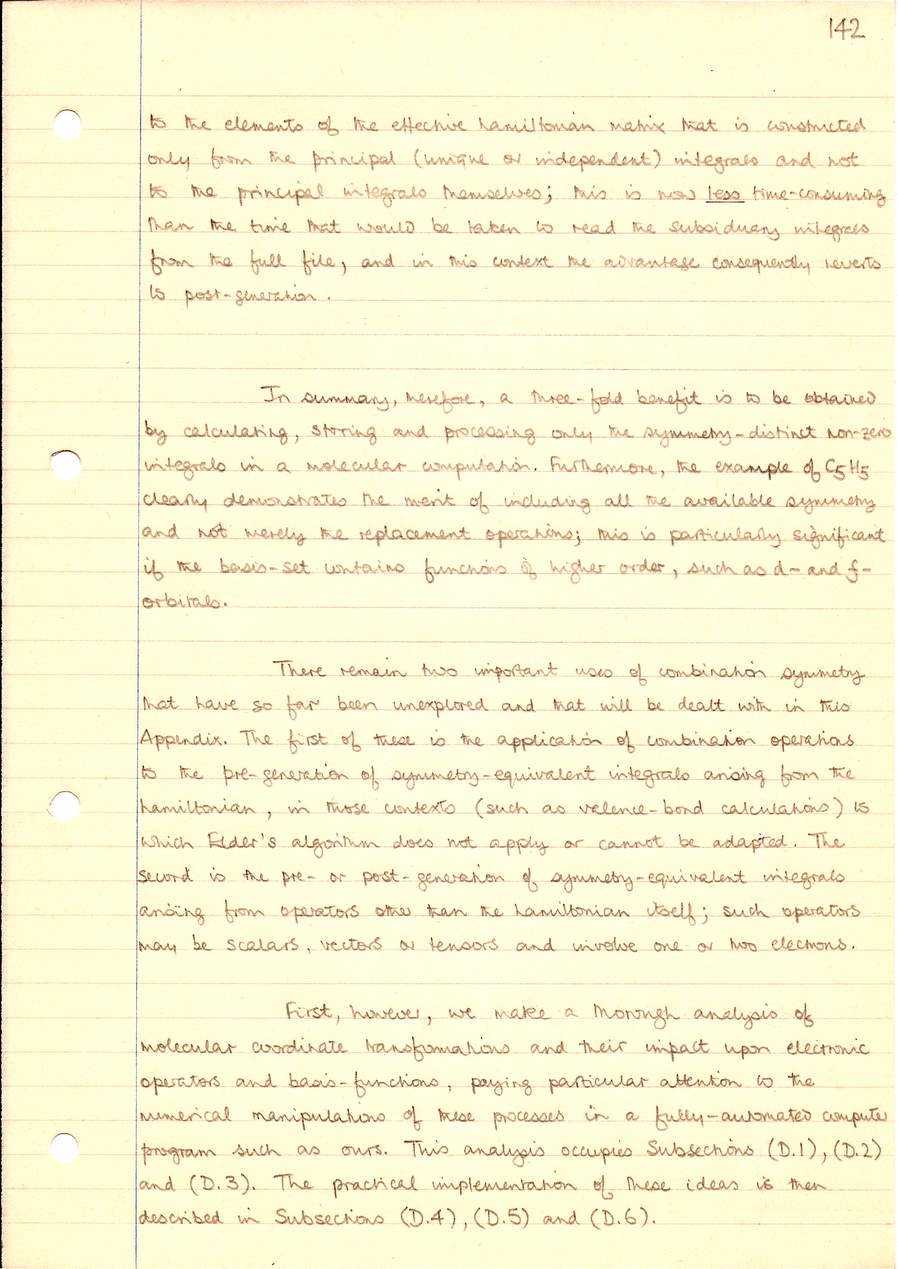 142
to the elements of the effective hamiltonian matrix that is constructed
only from the principal (unique or independent) integrals and not
to the principal integrals themselves; this is now less time-consuming
than the time that would be taken to read the subsiduary integrals
from the full file, and in this context the advantage consequently reverts
to post-generation.
In summary, therefore, a three-fold benefit is to be obtained
by calculating, storing and processing only the symmetry-distinct non-zero
integrals in a molecular computation. Furthermore, the example of C5H5
clearly demonstrates the merit of including all the available symmetry
and not merely the replacement operations; this is particularly significant
if the basis-set contains functions of higher order, such as d- and f-
orbitals.
There remain two important uses of combination symmetry
that have so far been unexplored and that will be dealt with in this
Appendix. The first of these is the application of combination operations
to the pre-generation of symmetry-equivalent integrals arising from the
hamiltonian, in those contexts (such as valence-bond calculations) to
which Elder's algorithm does not apply or cannot be adapted. The
second is the pre- or post-generation of symmetry-equivalent integrals
arising from operators other than the hamiltonian itself; such operators
may be scalars, vectors or tensors and involve one or two electrons.
First, however, we make a thorough analysis of
molecular coordinate transformations and their impact upon electronic
operators and basis-functions, paying particular attention to the
numerical manipulations of these processes in a fully-automated computer
program such as ours. This analysis occupies Subsections (D.1), (D.2)
and (D.3). The practical implementation of these ideas is then
described in Subsections (D.4), (D.5) and (D.6).